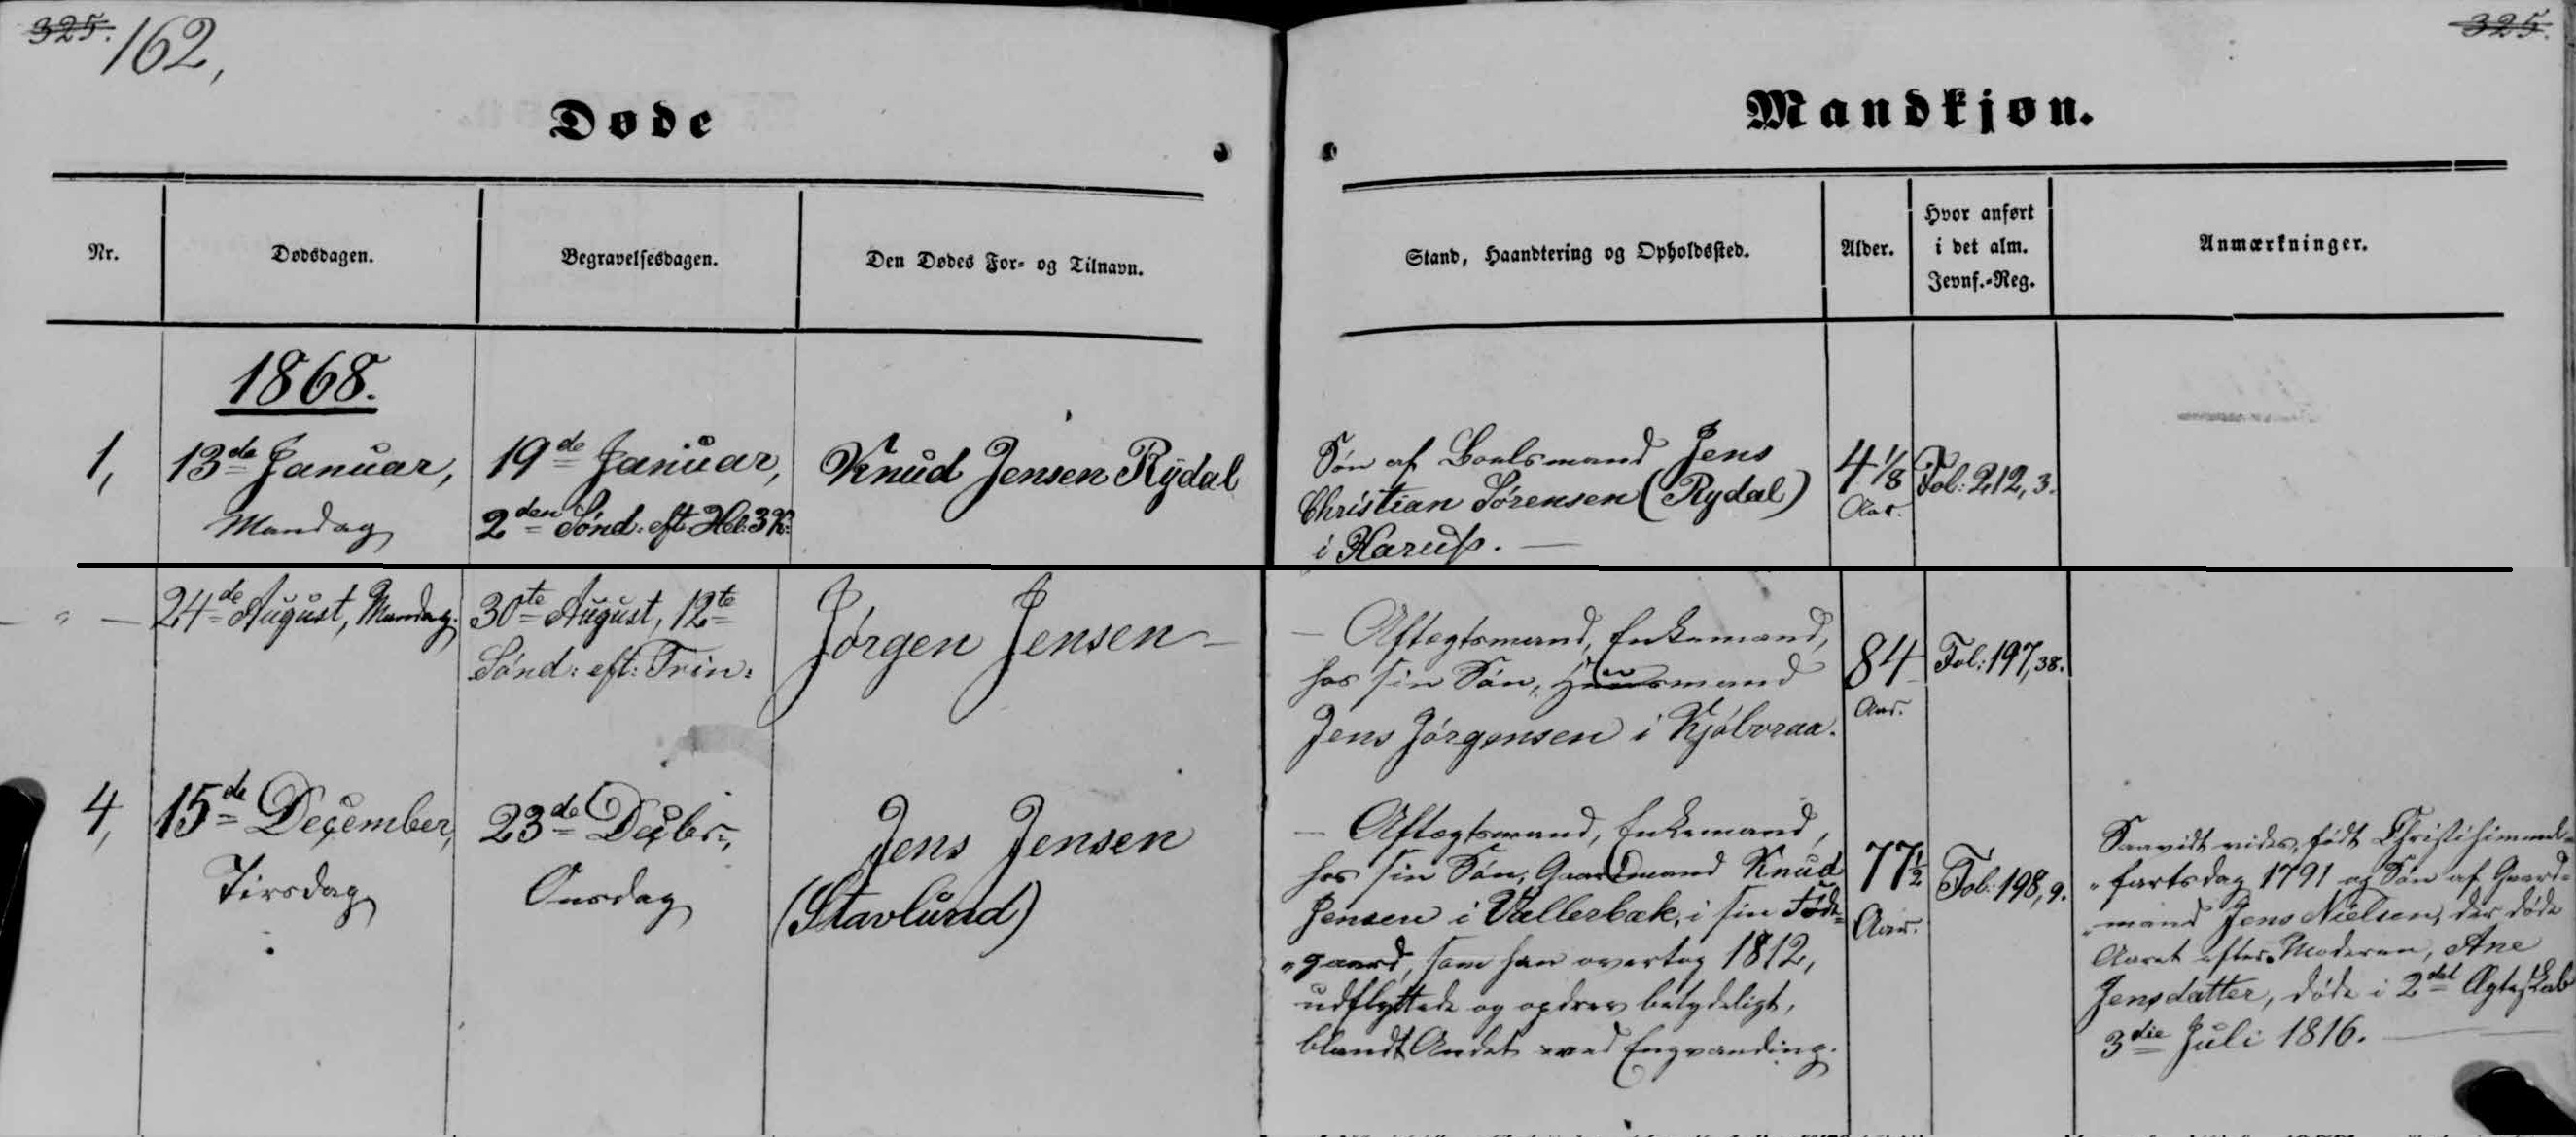 325.
162,
325.
Døde
Mandkjøn.
Nr.
Dødsdagen.
Begravelsesdagen.
Den Dødes For- og Tilnavn.
Stand, Haandtering og Opholdssted.
Alder.
Hvor anført
i det alm.
Jevnf.-Reg.
Anmærkninger.
1868.
1,
13de Januar,
Mandag
19de Januar,
2den Sønd: eft. Hel: 3 K:
Knud Jensen Rydal
Søn af Boelsmand Jens
Christian Sørensen (Rydal)
i Karuss. —
4 1/8
Aar.
Fol: 212, 3.
— " —
24de August, Mandag.
30te August, 12te
Sønd: eft: Trin:
Jørgen Jensen —
— Aftægtsmand, Enkemand,
hos sin Søn, Huusmand
Jens Jørgensen i Kjølvraa.
84
Aar.
Fol: 197, 38.
4,
15de December,
Tirsdag
23de Decbr.,
Onsdag
Jens Jensen
(Stavlund)
— Aftægtsmand, Enkemand,
hos sin Søn, Gaardmand Knud
Jensen i Vallerbæk, i sin Føde-
"gaard, som han overtog 1812,
udflyttede og opdrev betydeligt,
blandt Andet ved Engvanding.
77 1/2
Aar.
Fol: 198, 9.
Saavidt vides, født Christihimmel-
"fartsdag 1791 og Søn af Gaard-
"mand Jens Nielsen, der døde
Aaret efter. Moderen, Ane
Jensdatter, døde i 2det Ægteskab
3die Juli 1816. —